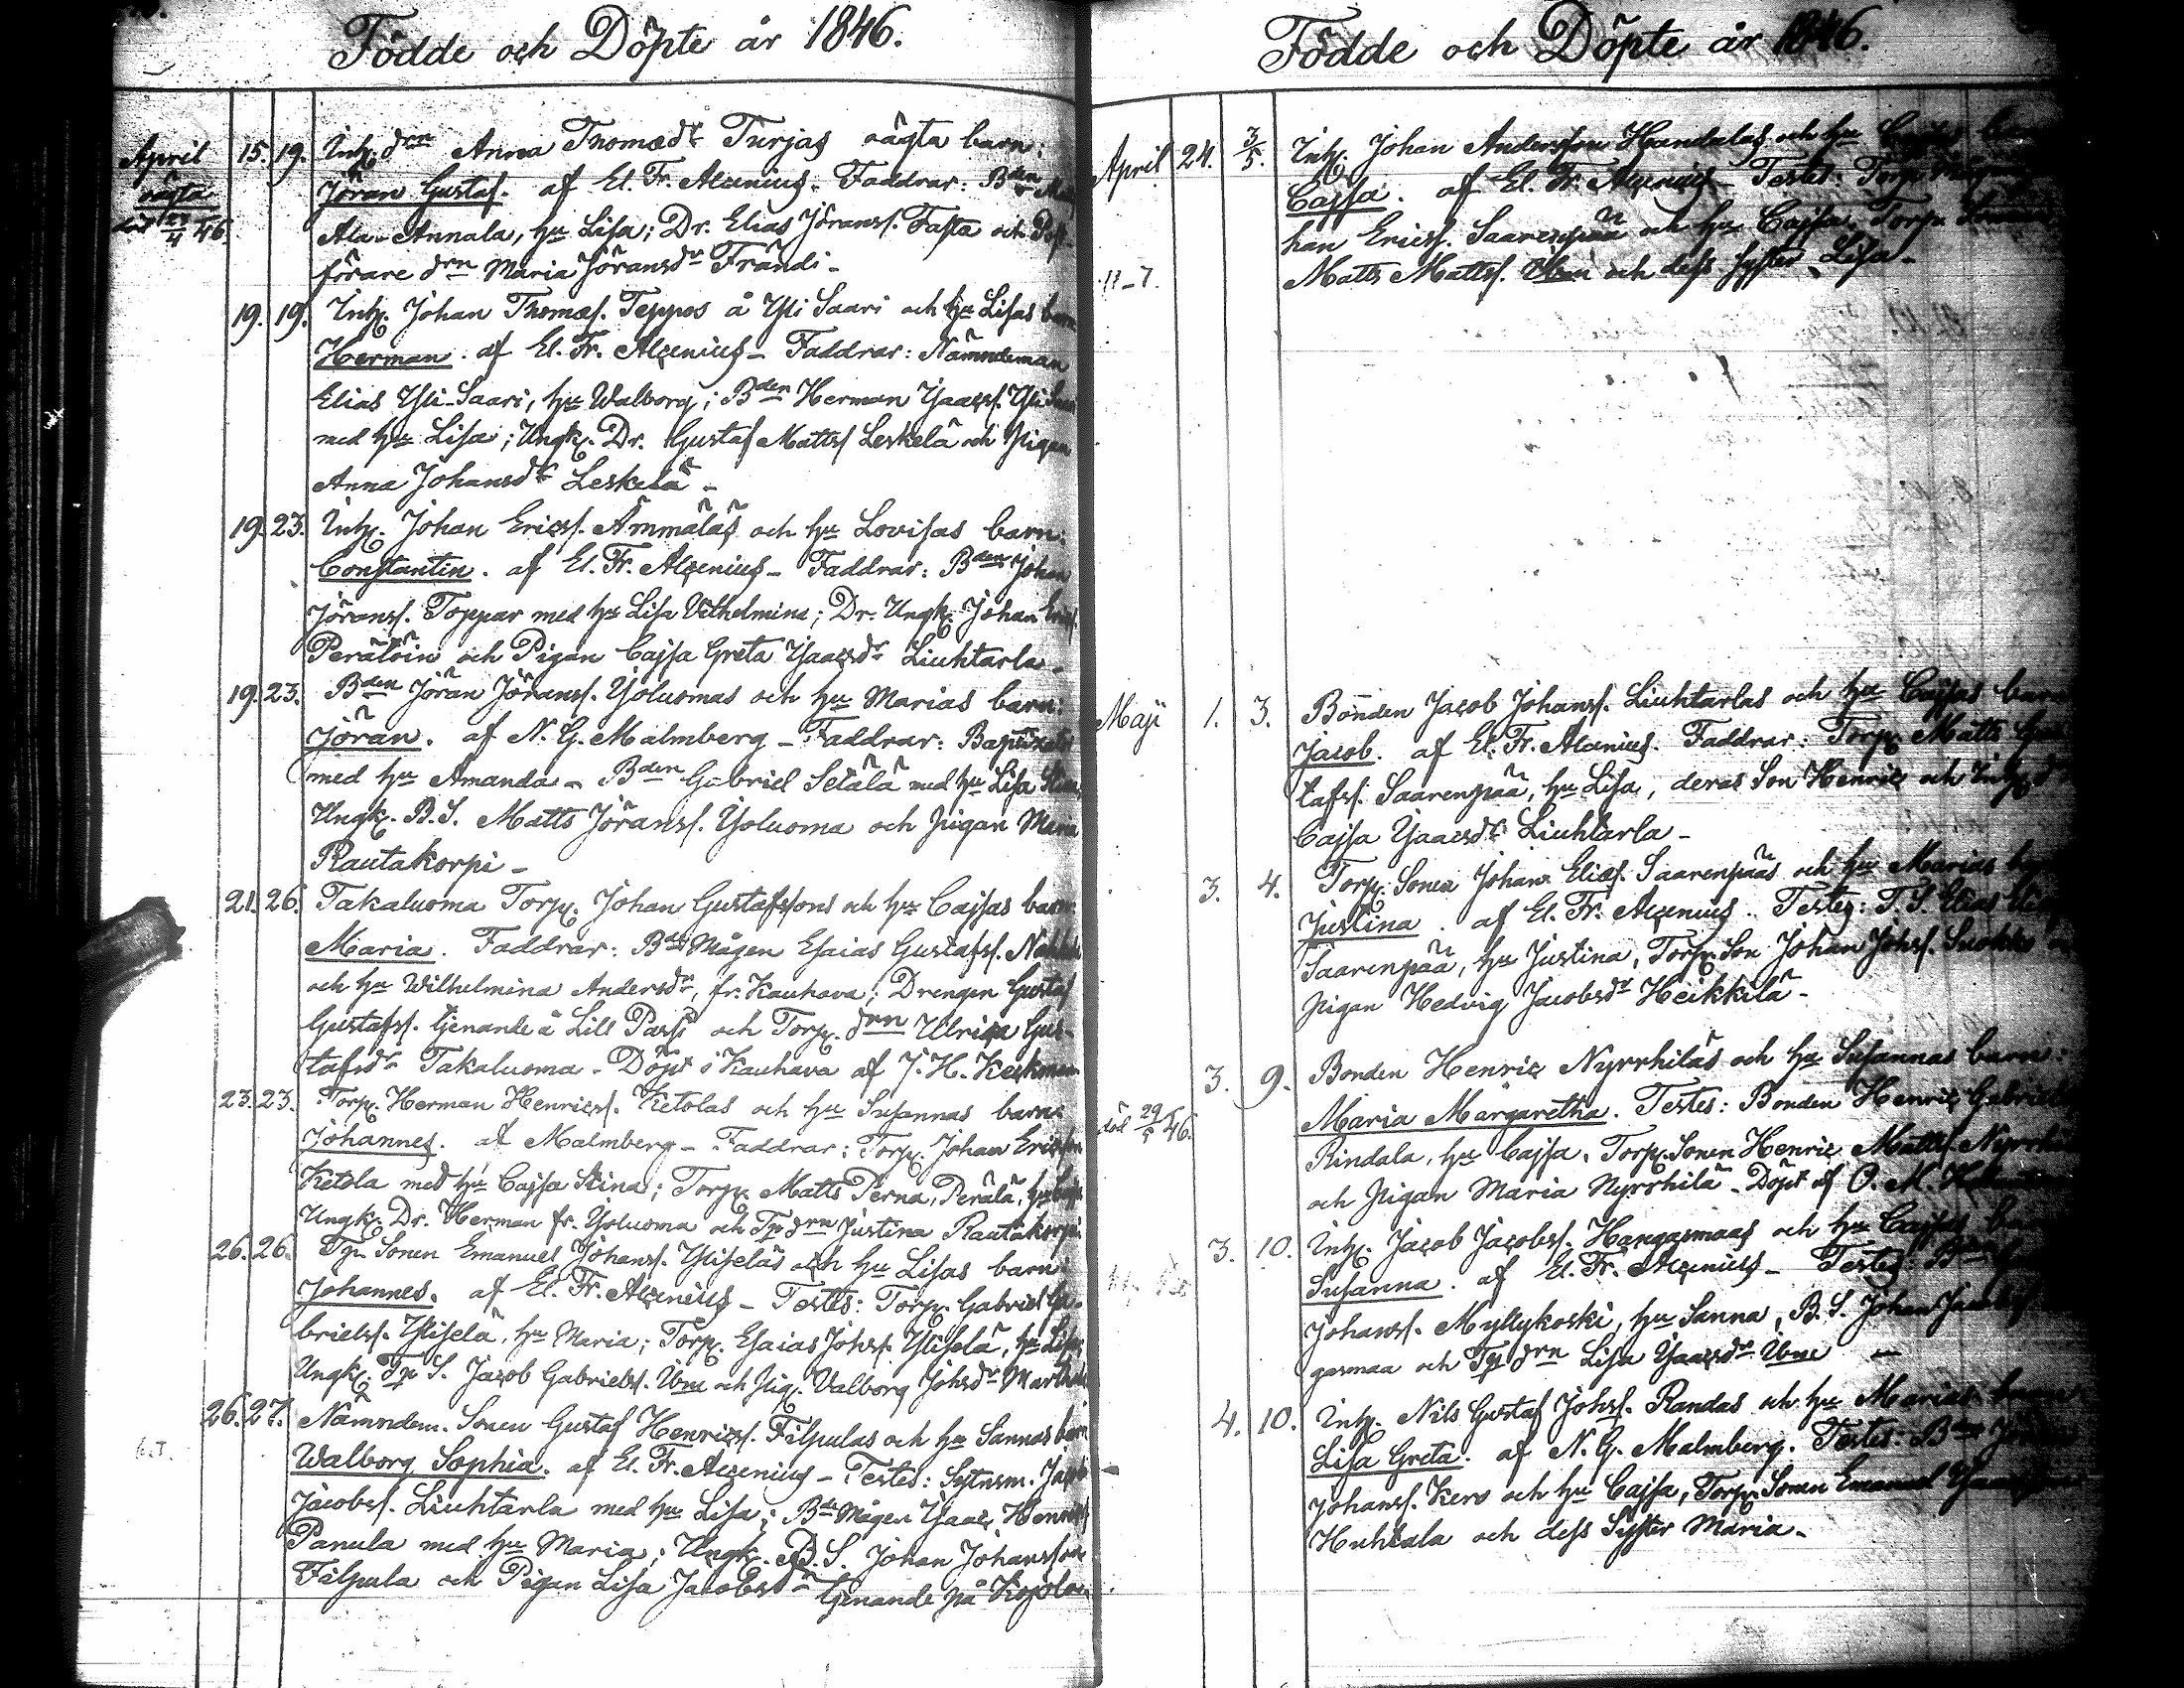 Födde och Döpte år 1846.
April 15. 19. Inh. drn Anna Thomædr Turjas oägta barn:
oägta Jöran Gustaf. af El. Fr. Alcenius. Faddrar: Bden
död 23/4 46. Ala-Annala, hu Lisa; Dr. Elias Jöranss. Fasta och
förare drn Maria Jöransdr Frändi -
19. 19. Inh. Johan Thomæs. Teppos å Yli Saari och hu Lisas barn
Herman. af El. Fr. Alcenius - Faddrar: Nämndeman
Elias Yli-Saari, hu Walborg; Bden Herman Ysaacss. Yli Saari
med hu Lisa; Ungk. Dr. Gustaf Mattss Leskelä och Pigan
Anna Johansdr Leskelä -
19. 23. Inh. Johan Ericss. Ämmäläs och hu Lovisas barn:
Constantin. af El. Fr. Alcenius - Faddrar: Bden Johan
Jöranss. Toppar med hu Lisa Vilhelmina; Dr. Ungk. Johan Ericss.
Perälöin och Pigan Cajsa Greta Ysaacsdr Liuhtarla -
19. 23. Bden Jöran Jöranss. Yoluomas och hu Marias barn:
Jöran. af N. G. Malmberg - Faddrar:
med hu Amanda - Bden Gabriel Setälä med hu Lisa Stina,
Ungk. B. S. Matts Jöranss. Yoluoma och Pigan Maria
Rautakorpi -
21. 26. Takaluoma Torp. Johan Gustafssons och hu Cajsas barn:
Maria. Faddrar: Bde Mågen Esaias Gustafss.
och hu Wilhelmina Andersdr, fr. Kauhava; Drengen Gustaf
Gustafss. tjenande å Lill Passi och Torp. drn Ulrica Gus-
tafsdr Takaluoma - Döpt i Kauhava af J. H. Keckman
23. 23. Torp. Herman Henricss. Ketolas och hu Susannas barn:
Johannes. af Malmberg - Faddrar: Torp. Johan Ericsson
Ketola med hu Cajsa Stina; Torp. Matts Perna, Perälä, hu
Ungk. Dr. Herman fr. Yoluoma och Tp drn Justina Rautakorpi
26. 26. Tp. Sonen Emanuel Johanss. Yliseläs och hu Lisas barn:
Johannes. af El. Fr. Alcenius - Testes: Torp. Gabriel Ga-
brielss. Yliselä, hu Maria; Torp. Esaias Johss. Yliselä, hu Lisa;
Ungk. Tp S. Jacob Gabrielss. Ibm och Pig. Valborg Johsdr
26. 27. Nämndem. Sonen Gustaf Henricss. Filpulas och hu Sannas barn
Walborg Sophia. af El. Fr. Alcenius - Testes: Sytnm. Jacob
Jacobss. Liuhtarla med hu Lisa; Bde Mågen Ysaac Henricss
Panula med hu Maria; Ungk. B. S. Johan Johansson
Filpula och Pigan Lisa Jacobsdr tjenande på Kojola
Födde och Döpte år 1846.
April 24. 3/5. Inh. Johan Andersson Handolas och hu Cajsas barn
Cajsa. af El. Fr. Alcenius - Testes: Torp.
han Ericss. Saarenpää och hu Cajsa, Torp. Sonen
Matts Mattss. Ibm och dess syster Lisa -
Maji 1. 3. Bonden Jacob Johanss. Liuhtarlas och hu Cajsas barn
Jacob. af El. Fr. Alcenius. Faddrar: Torp. Matts Gus-
tafss. Saarenpää, hu Lisa, deras Son Henric och Inh. d
Cajsa Ysaacsdr Liuhtarla -
3. 4. Torp. Sonen Johan Eliæs. Saarenpääs och hu Marias
Justina. af El. Fr. Alcenius. Testes: T. S. Elias
Saarenpää, hu Justina, Torp. Son Johan Johss. Luokko
Pigan Hedvig Jacobsdr Heikkilä -
3. 9. Bonden Henric Nyrrhiläs och hu Susannas barn:
död 29/5 46. Maria Margaretha. Testes: Bonden Henric Gabriels
Rindala, hu Cajsa, Torp. Sonen Henric Mattss. Nyrrhilä
och Pigan Maria Nyrrhilä - Döpt af O. M.
3. 10. Inh. Jacob Jacobss. Hangasmaas och hu Cajsas
Susanna. af El. Fr. Alcenius - Testes:
Johanss. Myllykoski, hu Sanna, B. S. Johan
gasmaa och Tp drn Lisa Ysaacsdr Ibm -
4. 10. Inh. Nils Gustaf Johss. Randas och hu Marias
Lisa Greta. af N. G. Malmberg. Testes:
Johanss. Kero och hu Cajsa, Torp. Sonen Emanuel
Huhtala och dess Syster Maria -